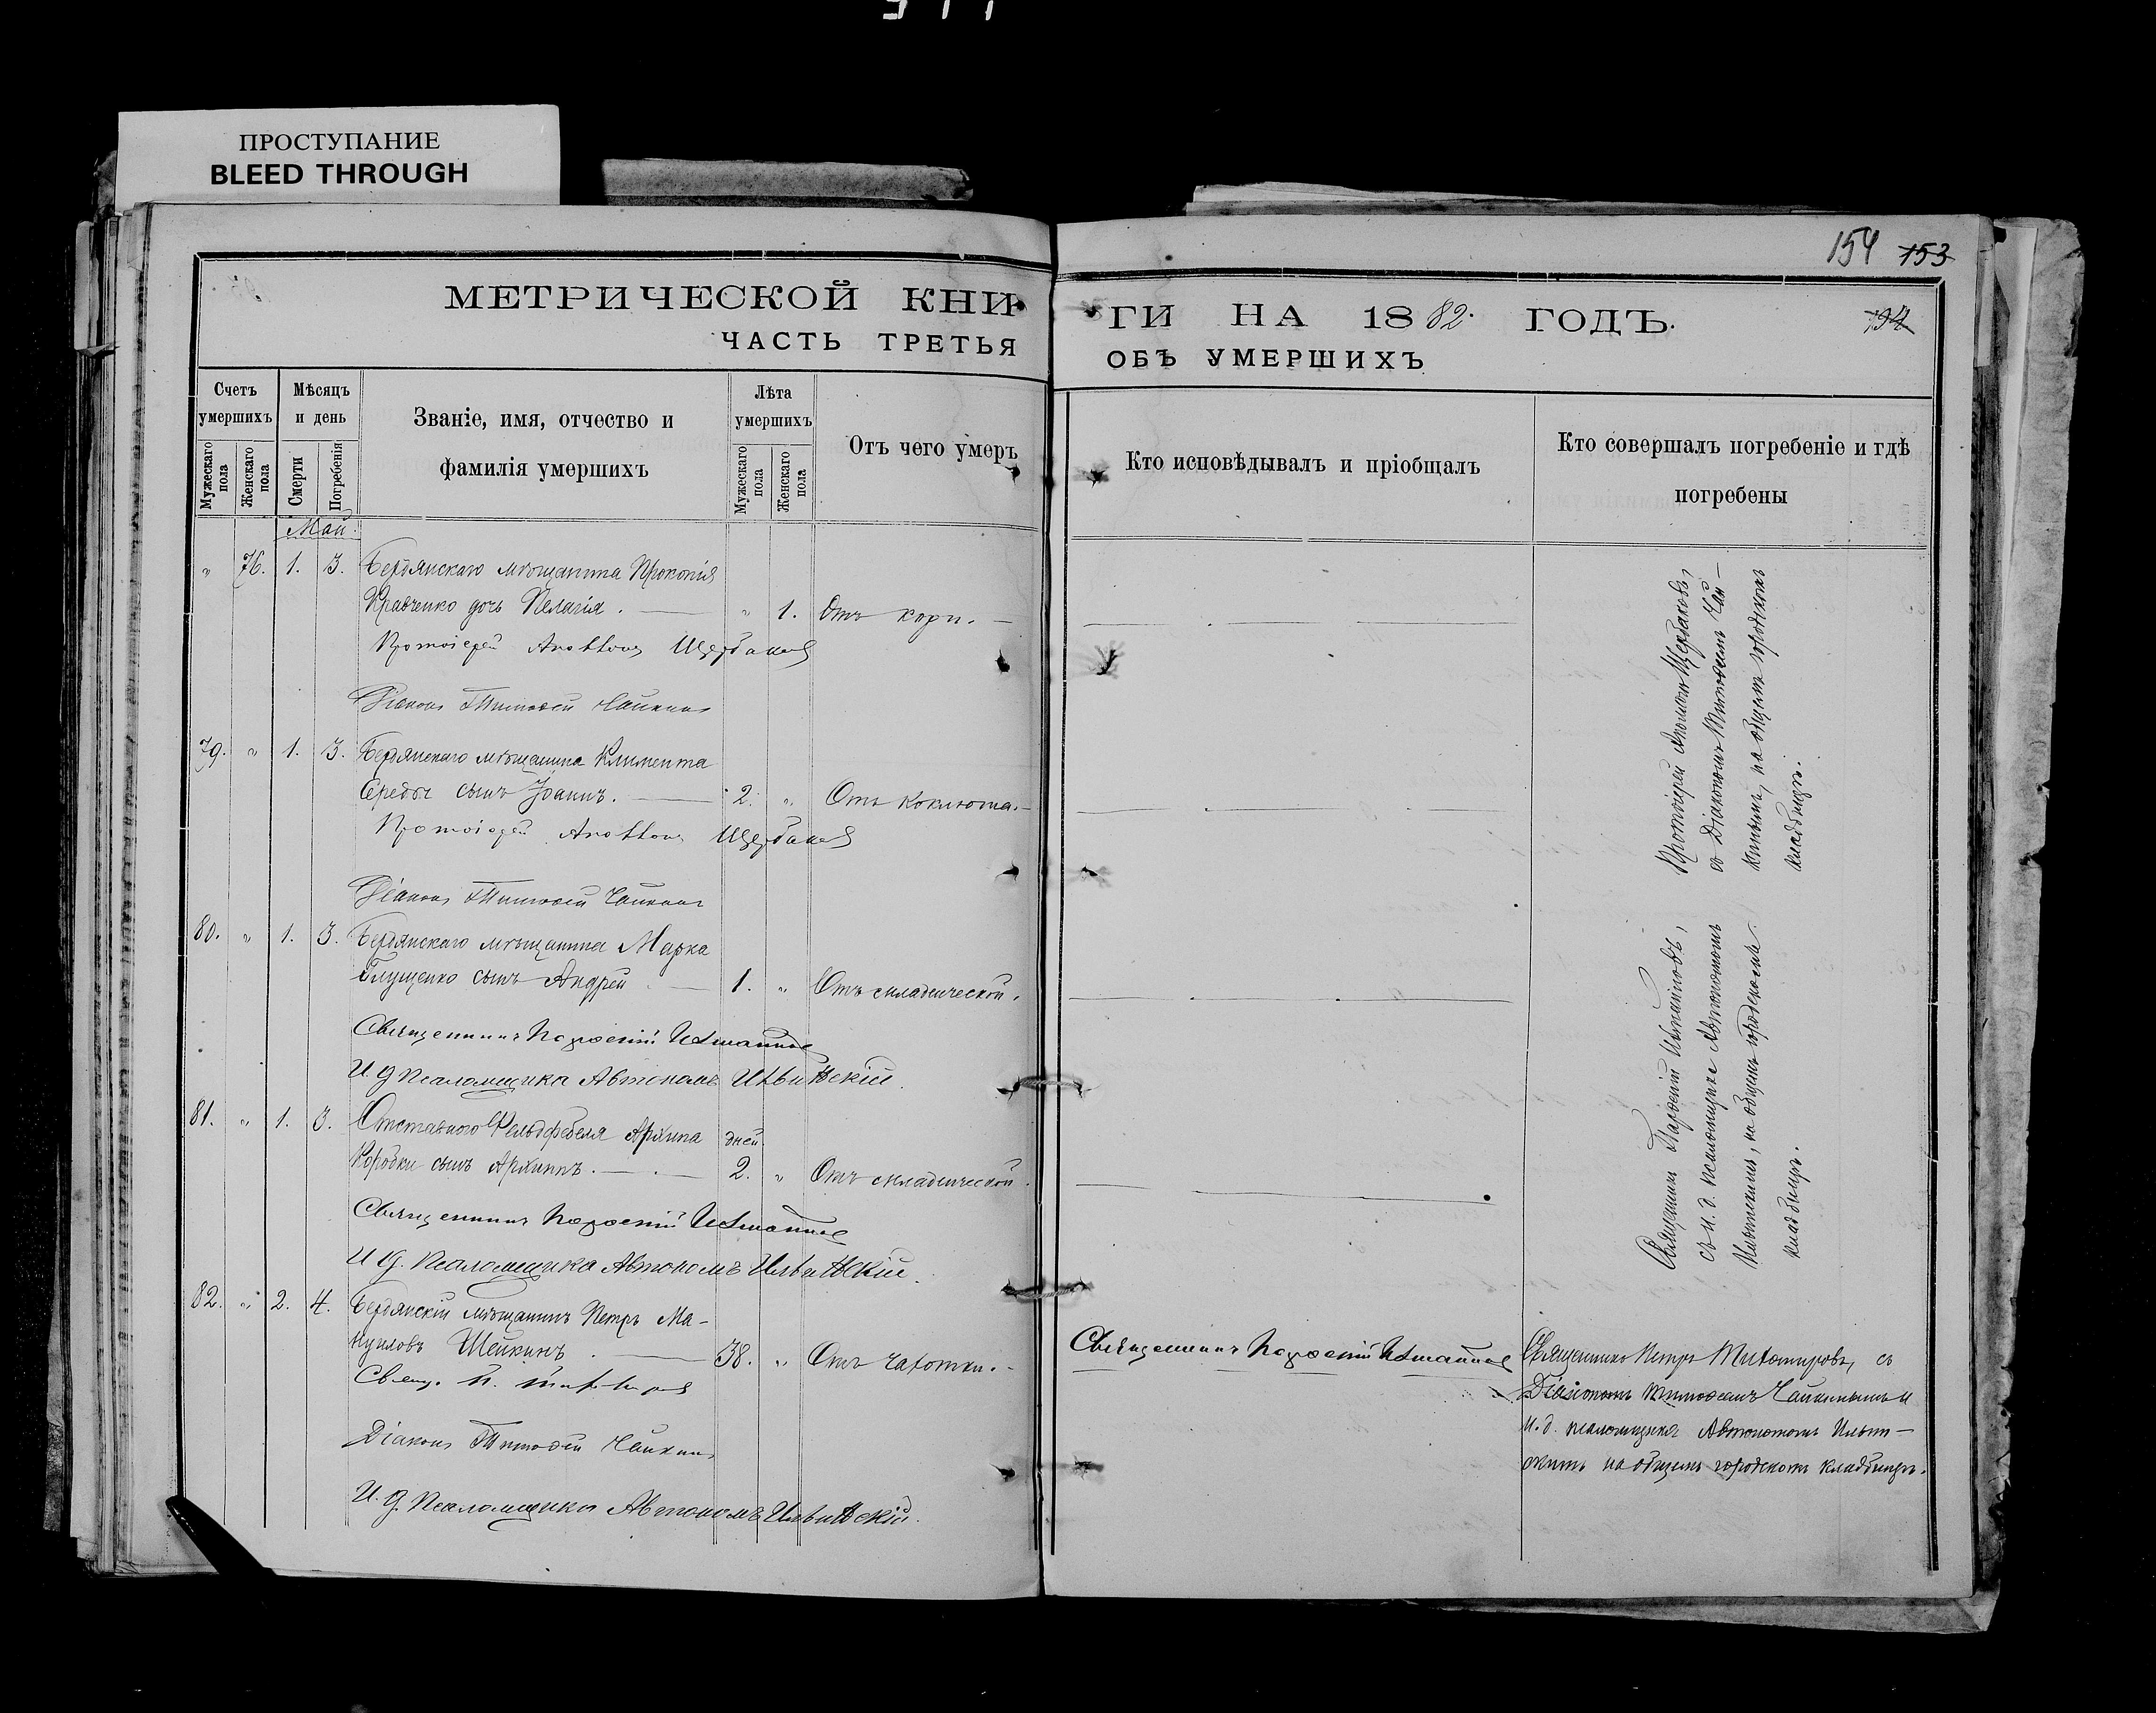 ПРОСТУПАНИЕ
BLEED THROUGH
154 153
МЕТРИЧЕСКОЙ КНИ
ГИ НА 1882. ГОДЪ.
194
ЧАСТЬ ТРЕТЬЯ
ОБЪ УМЕРШИХЪ
Счетъ умершихъ
Мужескаго пола
Женскаго пола
Мѣсяцъ и день
Смерти
Погребенія
Званіе, имя, отчество и
фамилія умершихъ
Лѣта умершихъ
Мужескаго пола
Женскаго пола
Отъ чего умеръ
Кто исповѣдывалъ и пріобщалъ
Кто совершалъ погребеніе и гдѣ
погребены
Май.
" 76. 1. 3. Бердянскаго мѣщанина Прокопія
Кравченко дочь Пелагія. — " 1. Отъ кори. —
Протоіерей Щербаковъ
Діаконъ Тимоѳей Чайкинъ
79. " 1. 3. Бердянскаго мѣщанина Климента
Середы сынъ Іоаннъ. — 2. " Отъ коклюша. —
Протоіерей Щербаковъ
Діаконъ Тимоѳей Чайкинъ
Протоіерей Щербаковъ,
съ Діакономъ Тимоѳеемъ Чай-
кинымъ, на общемъ городскомъ
кладбищѣ.
80. " 1. 3. Бердянскаго мѣщанина Марка
Глущенко сынъ Андрей — 1. " Отъ младенческой.
Священникъ
И. д Псаломщика Автономъ Ильинскій.
81. " 1. 3. Отставного Фельдфебеля Архипа дней
Коробки сынъ Архиппъ. — 2. " Отъ младенческой.
Священникъ
И д. Псаломщика Автономъ Ильинскій.
Священникъ
съ и. д. псаломщика Автономомъ
Ильинскимъ, на общемъ городскомъ
кладбищѣ.
82. " 2. 4. Бердянскій мѣщанинъ Петръ Ма-
нуиловъ Шейкинъ. — 38. " Отъ чахотки. —
Свящ. П.
Діаконъ Тимоѳей Чайкинъ
И. д. Псаломщика Автономъ Ильинскій.
Священникъ
Священникъ Петръ Тихомировъ, съ
Діакономъ Тимоѳеемъ Чайкинымъ и
и. д. псаломщика Автономомъ Ильин-
скимъ на общемъ городскомъ кладбищѣ.